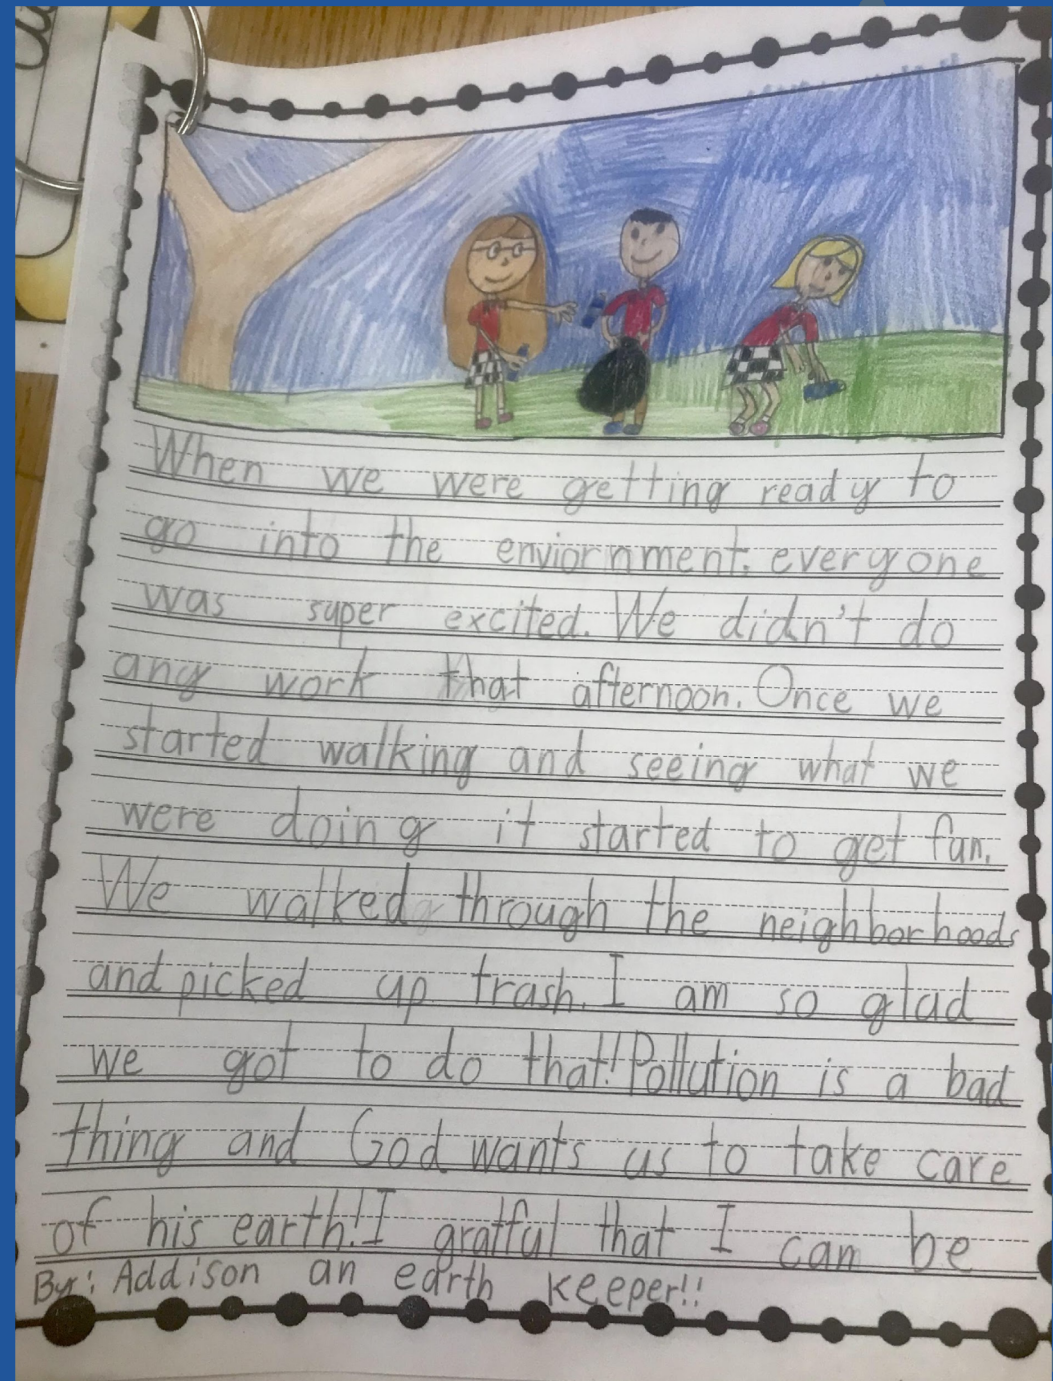 When we were getting ready to
go into the enviornment, everyone
was super excited. We didn't do
any work that afternoon. Once we
started walking and seeing what we
were doing it started to get fun.
We walked through the neighborhoods
and picked up trash. I am so glad
we got to do that! Pollution is a bad
thing and God wants us to take care
of his earth! I gratful that I can be
By: Addison an earth keeper!!